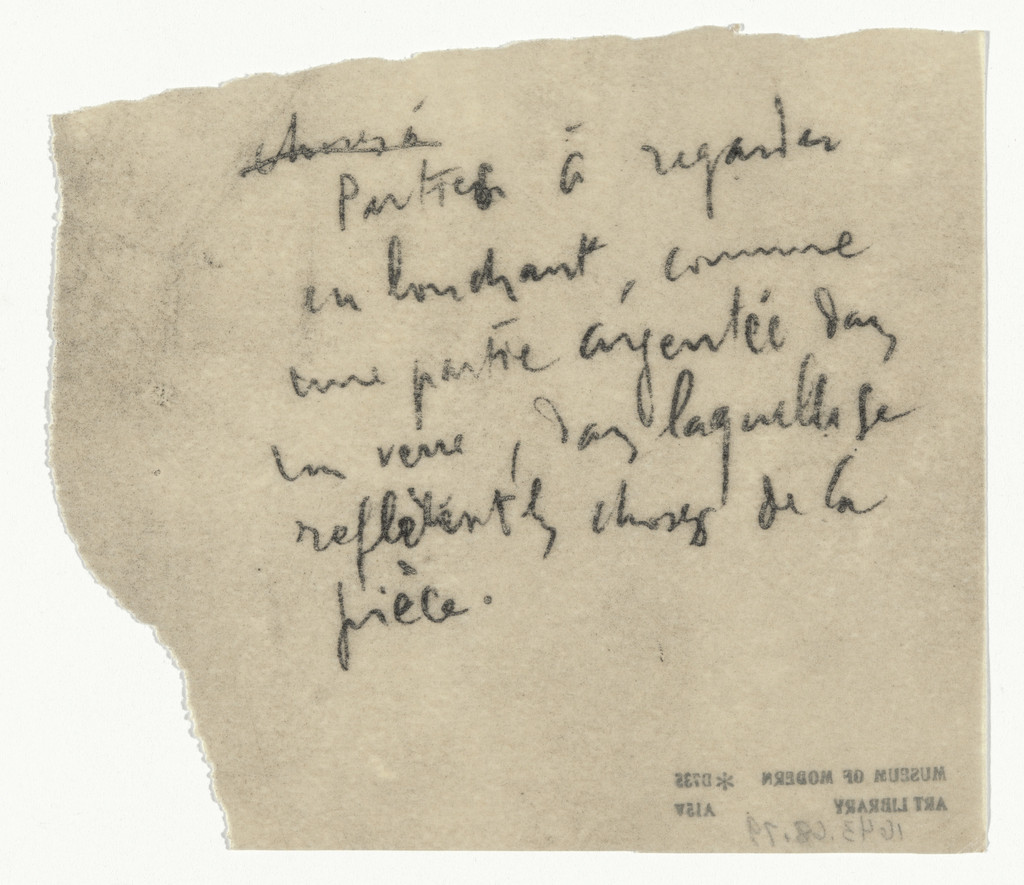 choses à
Parties à regarder
en louchant, comme
une partie argentée dans
un verre, dans laquelle se
reflètent les choses de la
pièce.
MUSEUM OF MODERN * D735
ART LIBRARY A15V
1643.68.19